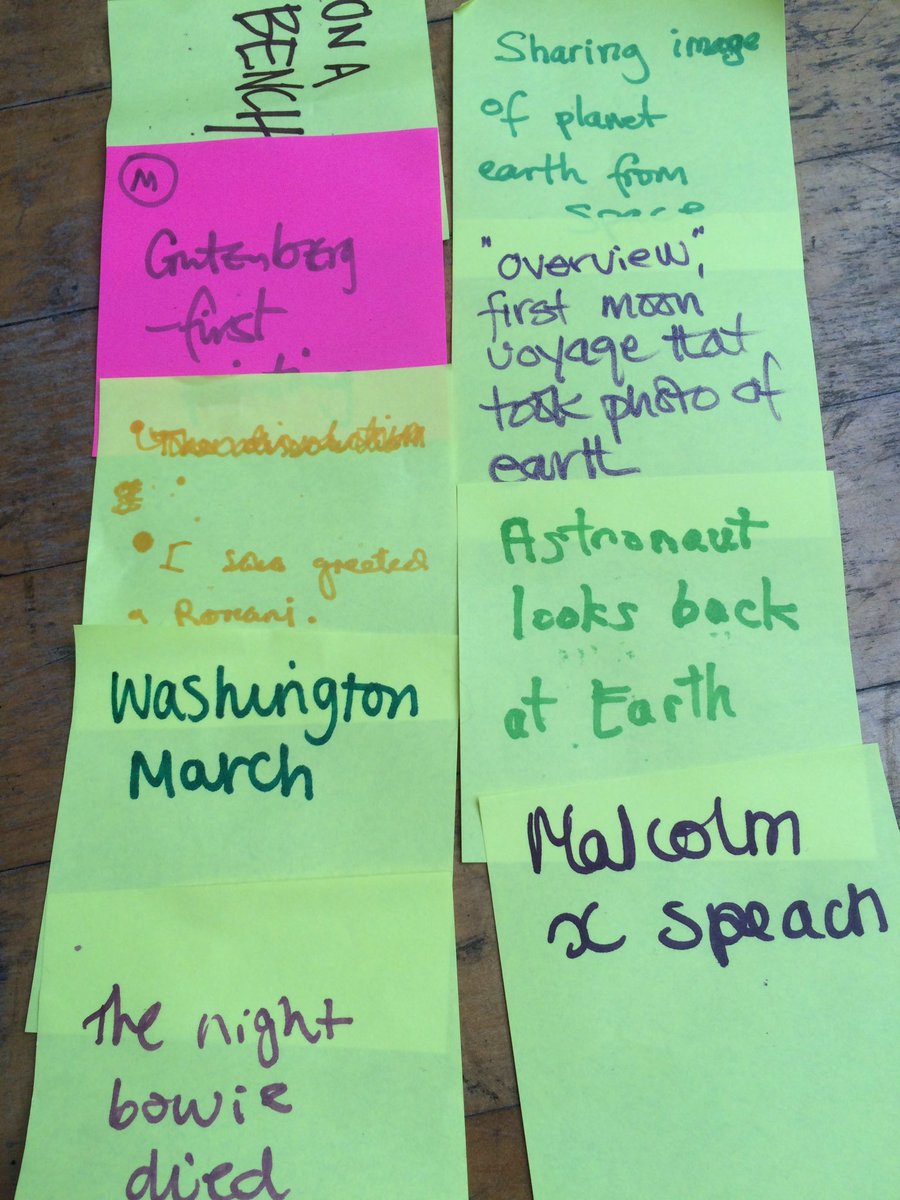 ON A
BENCH
M
Gutenberg
-first
I saw greeted
a Romani.
Washington
March
The night
bowie
died
Sharing image
of planet
earth from
space
"overview",
first moon
voyage that
took photo of
earth
Astronaut
looks back
at Earth
Malcolm
x speach